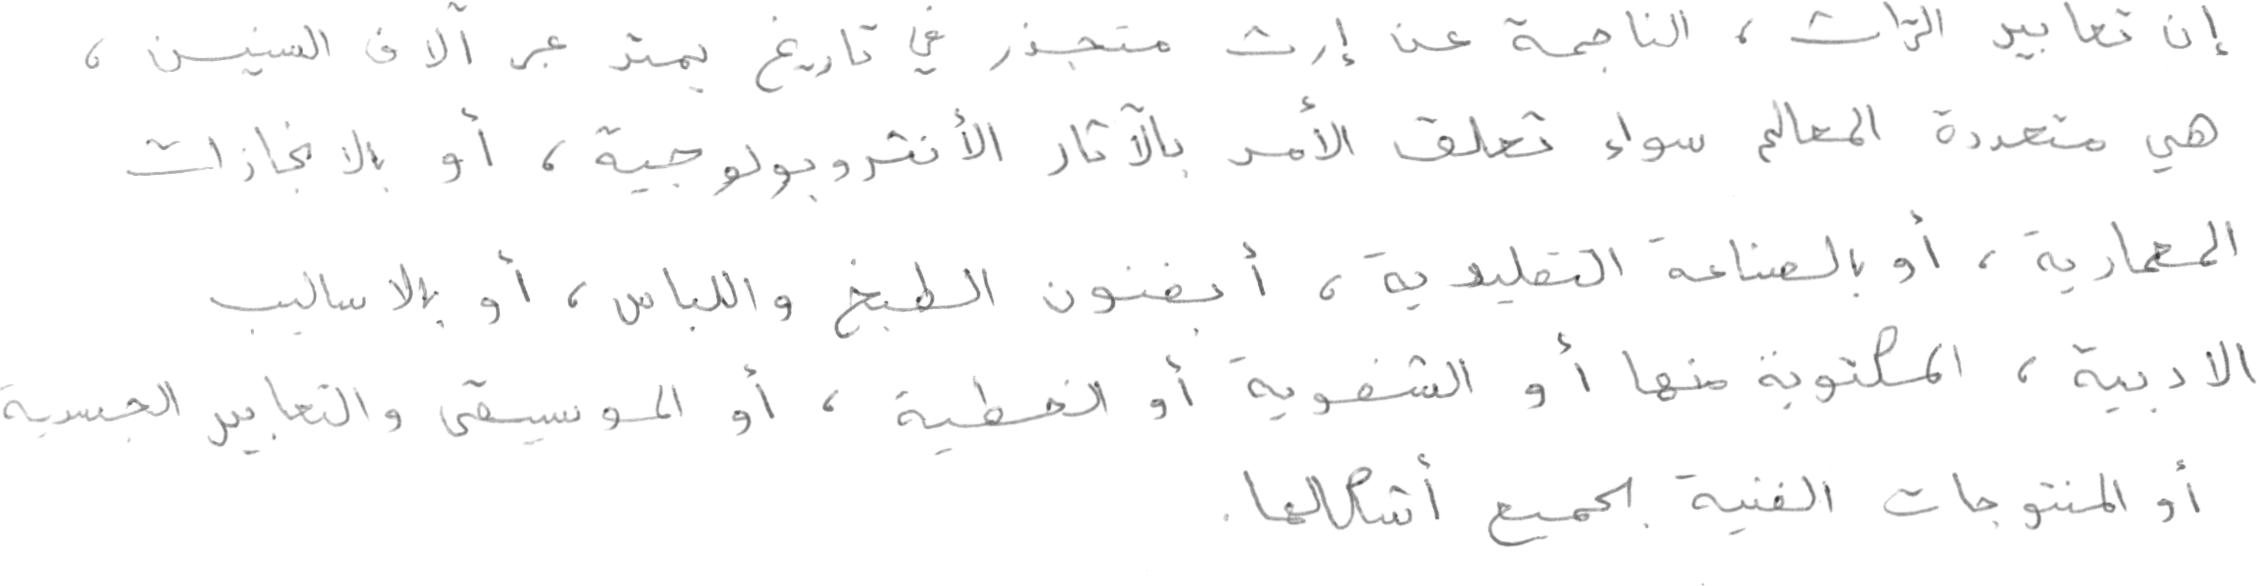 إن تعابير التراث ، الناجمة عن إرث متجذر في تاريخ يمتد عبر آلاف السنين ،
هي متعددة المعالم سواء تعلق الأمر بالآثار الأنثروبولوجية ، أو بالانجازات
المعمارية ، أو بالصناعة التقليدية ، أ بفنون الطبخ واللباس ، أو بالاساليب
الادبية ، المكتوبة منها أو الشفوية أو الخطية ، أو الموسيقى والتعابير الجسدية
أو المنتوجات الفنية بجميع أشكالها.